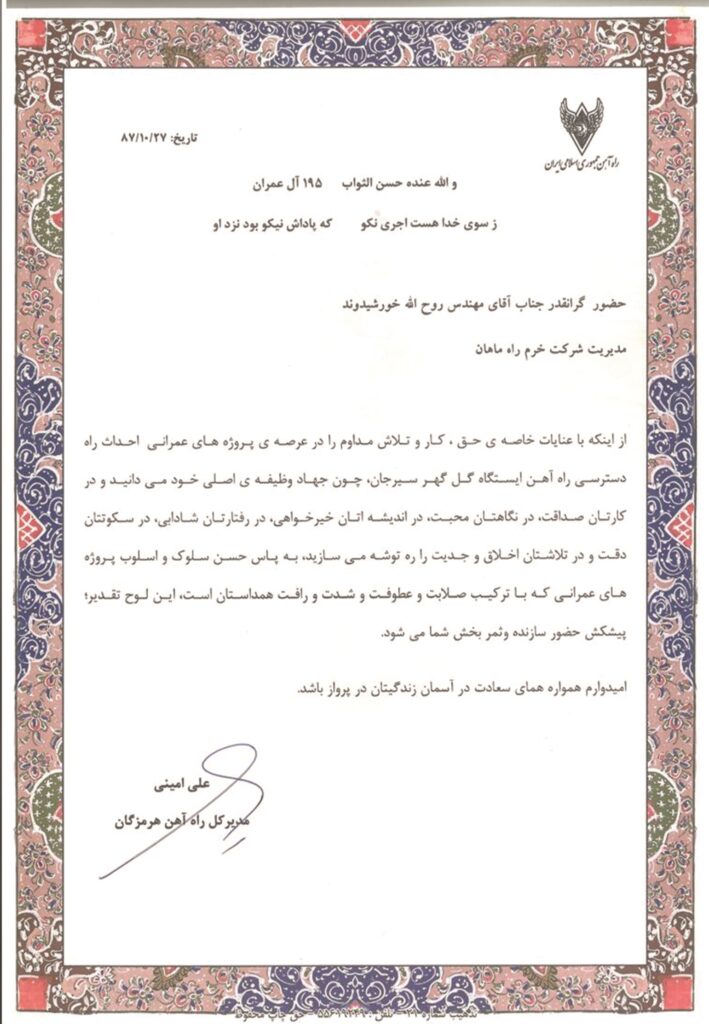 راه آهن جمهوری اسلامی ایران
تاریخ: ۸۷/۱۰/۲۷
و الله عنده حسن الثواب ۱۹۵ آل عمران
ز سوی خدا هست اجری نکو که پاداش نیکو بود نزد او
حضور گرانقدر جناب آقای مهندس روح الله خورشیدوند
مدیریت شرکت خرم راه ماهان
از اینکه با عنایات خاصه ی حق ، کار و تلاش مداوم را در عرصه ی پروژه های عمرانی احداث راه
دسترسی راه آهن ایستگاه گل گهر سیرجان، چون جهاد وظیفه ی اصلی خود می دانید و در
کارتان صداقت، در نگاهتان محبت، در اندیشه اتان خیرخواهی، در رفتارتان شادابی، در سکوتتان
دقت و در تلاشتان اخلاق و جدیت را ره توشه می سازید، به پاس حسن سلوک و اسلوب پروژه
های عمرانی که با ترکیب صلابت و عطوفت و شدت و رافت همداستان است، این لوح تقدیر؛
پیشکش حضور سازنده وثمر بخش شما می شود.
امیدوارم همواره همای سعادت در آسمان زندگیتان در پرواز باشد.
علی امینی
مدیرکل راه آهن هرمزگان
تذهیب شماره ۳۱ - تلفن : - حق چاپ محفوظ